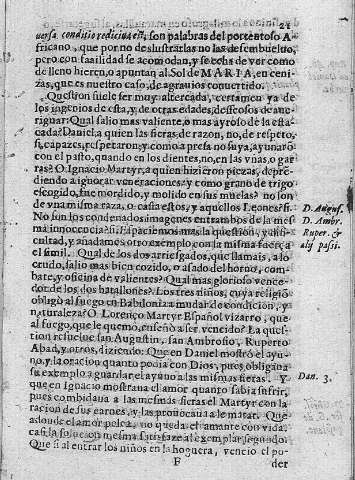 21
versa conditio rediciva est, son palabras del portentoso A-
fricano, que por no deslustrarlas no las desembueluo,
pero con facilidad se acomodan, y se echa de ver como
de lleno hieren, o apuntan al Sol de MARIA, en ceni-
zas, que es nuestro caso, de agrauios conuertido.
Question suele ser muy altercada, certamen ya de
los ingenios de esta, y de otras edades, desseosos de aue-
riguar: Qual salio mas valiente, o mas ayroso de la esta-
cada? Daniel, a quien las fieras, de razon, no, de respeto,
si, capaces, respetaron, y como a presa no suya, ayunarō
con el pasto, quando en los dientes, no, en las vñas, o gar-
ras? O Ignacio Martyr, a quien hizieron pieças, apren-
diendo a ignorar veneraciones, y como grano de trigo
escogido, fue mordido, y molido en sus muelas? no son
de vna misma raza, o casta estos, y aquellos Leones? si.
No son los condenados imagenes entrambos de la mes
ma innocencia? si. Espaciemos mas la question, y difi-
cultad, y añadamos otro exemplo con la misma fuerça
el simil. Qual de los dos arriesgados, que llamais, a lo
crudo, salio mas bien cozido, o asado del horno, com-
bate, y oficina de valientes? Qual mas glorioso vence-
dor de los dos batallones? Los tres niños, cuya religiō
obligò al fuego en Babilonia a mudar de condicion, y
naturaleza? O Lorenço Martyr Español vizarro, que
al fuego, que le quemò, enseñò a ser vencido? La ques-
tion resuelue san Augustin, san Ambrosio, Ruperto
Abad, y otros, diziendo: Que en Daniel mostrò el ayu-
no, y la oracion quanto podia con Dios, pues obligaua
su exemplo a guardar el ayuno a las mismas fieras. Y
que en Ignacio mostraua el amor quanto sabia sufrir,
pues combidaua a las mesmas fieras el Martyr con la
racion de sus carnes, y las prouocaua a le matar. Que
adonde el amor pelea, no queda el amante con vida.
casi la solucion mesma satisfaze al exemplar segundo.
Que si al entrar los niños en la hoguera, vencio el po-
F
der
D. Augus.
D. Ambr.
Ruper. &
alij passi.
Dan. 3.